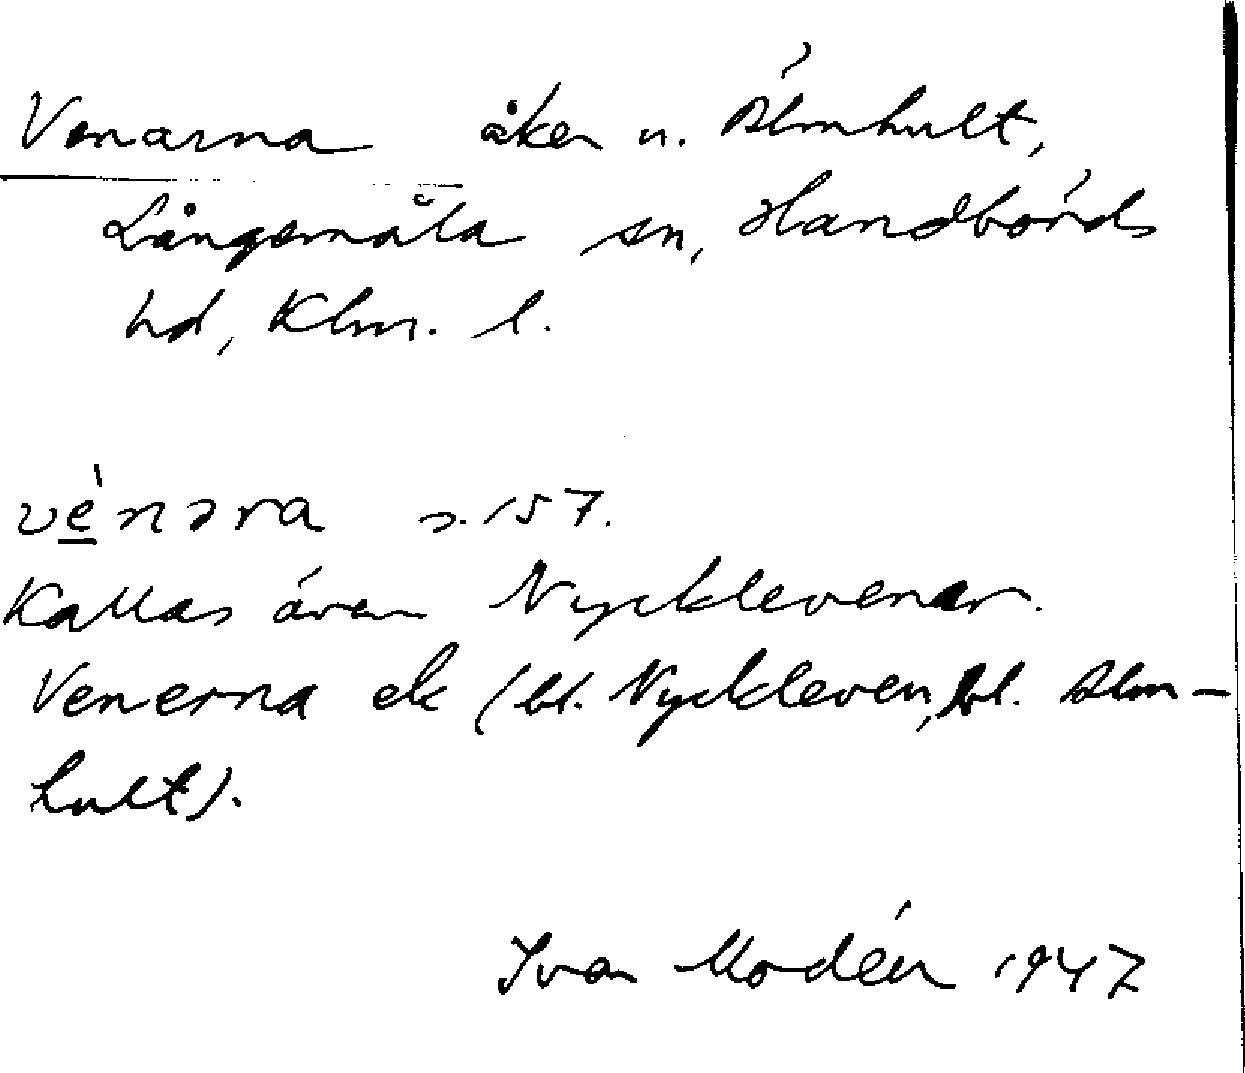 Venarna åker n. Älmhult,
Långemåla sn, Handbörds
hd, Klm. l.
vé̱nəra s. 157.
Kallas även Nycklevenar.
Venerna ek (bl. Nyckleven, bl. Älm-
hult).
Ivan Modéer 1947